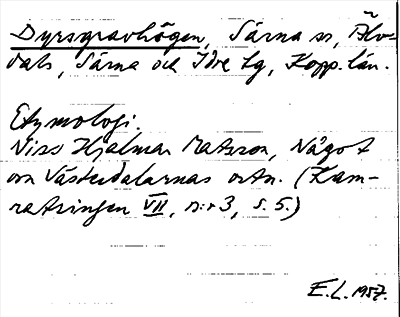 Dyrsgravhögen, Särna sn, Älv-
dals, Särna och Idre lg, Kopp. län.
Etymologi.
Niss Hjalmar Matsson, Något
om Västerdalarnas ortn. (Kam-
ratringen VII, n:r 3, s. 5.)
E.L. 1957.